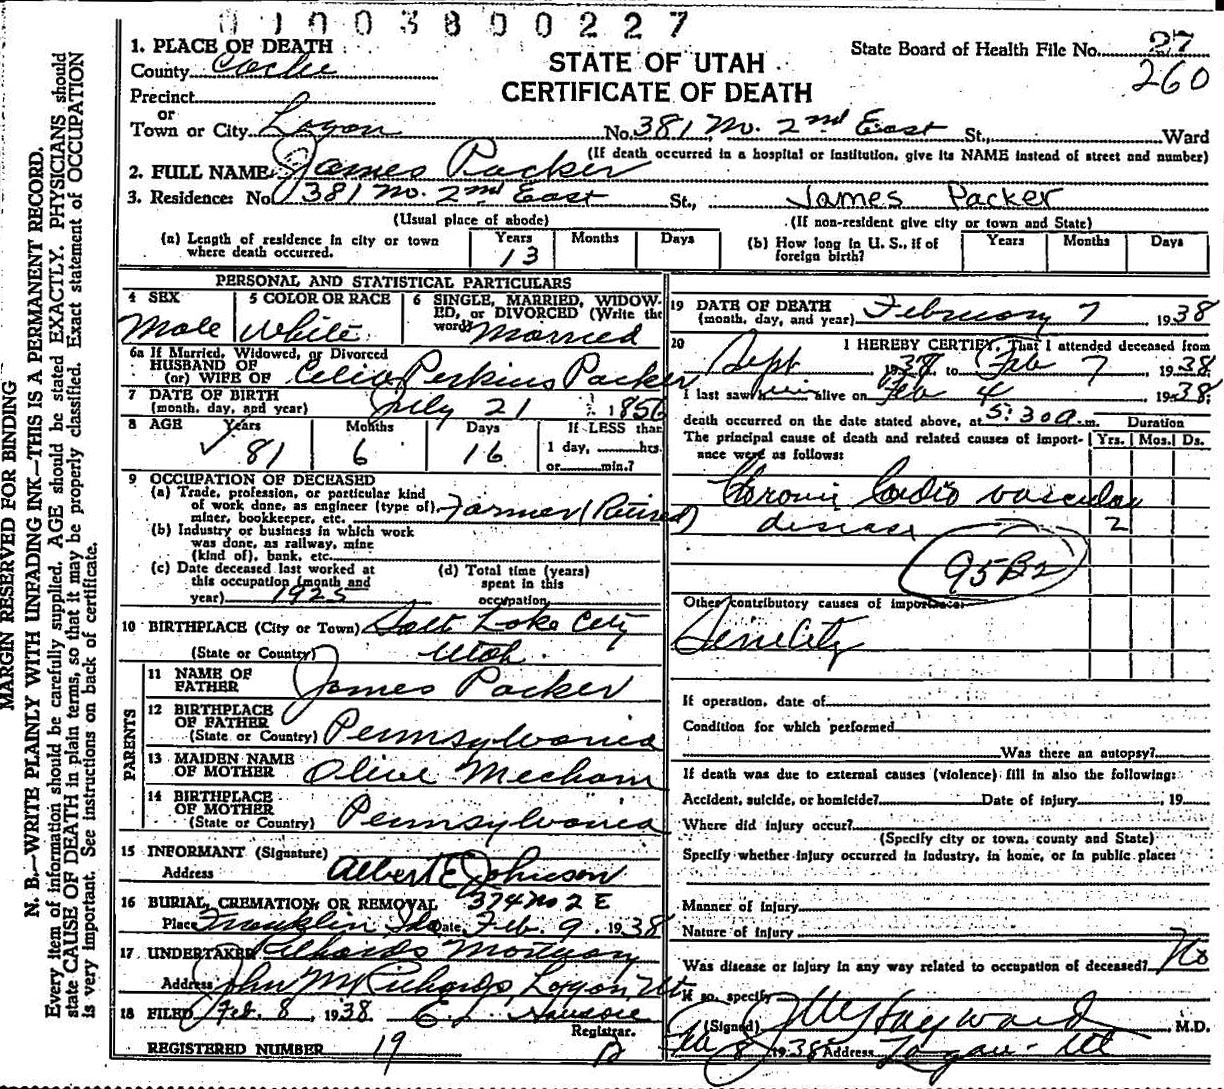 0100380 0227
STATE OF UTAH
CERTIFICATE OF DEATH
State Board of Health File No. 27
260
1. PLACE OF DEATH
County Cache
Precinct
or
Town or City Logan No. 381 No. 2nd East St., Ward
(If death occurred in a hospital or institution, give its NAME instead of street and number)
2. FULL NAME James Packer
3. Residence: No. 381 No. 2nd East St., James Packer
(Usual place of abode) (If non-resident give city or town and State)
(a) Length of residence in city or town where death occurred. Years 13 Months Days
(b) How long in U. S., if of foreign birth? Years Months Days
PERSONAL AND STATISTICAL PARTICULARS
4 SEX Male
5 COLOR OR RACE White
6 SINGLE, MARRIED, WIDOWED, or DIVORCED (Write the word) Married
6a If Married, Widowed, or Divorced
HUSBAND OF
(or) WIFE OF Celia Perkins Packer
7 DATE OF BIRTH
(month, day, and year) July 21 1856
8 AGE Years 81 Months 6 Days 16 If LESS than 1 day, hrs. or min.?
9 OCCUPATION OF DECEASED
(a) Trade, profession, or particular kind
of work done, as engineer (type of),
miner, bookkeeper, etc. Farmer (Retired)
(b) Industry or business in which work
was done, as railway, mine
(kind of), bank, etc.
(c) Date deceased last worked at
this occupation (month and
year) 1925
(d) Total time (years)
spent in this
occupation
10 BIRTHPLACE (City or Town) Salt Lake City
(State or Country) Utah.
PARENTS
11 NAME OF
FATHER James Packer
12 BIRTHPLACE
OF FATHER
(State or Country) Pennsylvania
13 MAIDEN NAME
OF MOTHER Olive Mecham
14 BIRTHPLACE
OF MOTHER
(State or Country) Pennsylvania
15 INFORMANT (Signature) Albert E Johnson
Address 374 No 2 E
16 BURIAL, CREMATION, OR REMOVAL
Place Franklin Ida Date Feb. 9. 1938
17 UNDERTAKER Richards Mortuary
Address John M Richards, Logan, Ut
18 FILED Feb. 8, 1938. E. L.
Registrar.
REGISTERED NUMBER 19
19 DATE OF DEATH
(month, day, and year) February 7 1938
20 I HEREBY CERTIFY, That I attended deceased from
Sept 1937 to Feb 7 1938
I last saw him alive on Feb 4 1938;
death occurred on the date stated above, at 5:30 a.m. Duration
The principal cause of death and related causes of importance were as follows: Yrs. Mos. Ds.
Chronic Cardio vascular
disease 2
95B2
Other contributory causes of importance:
Senility
If operation, date of
Condition for which performed
Was there an autopsy?
If death was due to external causes (violence) fill in also the following:
Accident, suicide, or homicide? Date of injury , 19
Where did injury occur?
(Specify city or town, county and State)
Specify whether injury occurred in industry, in home, or in public place:
Manner of Injury
Nature of injury
Was disease or injury in any way related to occupation of deceased? No
If so, specify
(Signed) Hayward M.D.
Feb 8 1938 Address Logan - Ut
MARGIN RESERVED FOR BINDING
N. B.—WRITE PLAINLY WITH UNFADING INK—THIS IS A PERMANENT RECORD.
Every item of information should be carefully supplied. AGE should be stated EXACTLY. PHYSICIANS should
state CAUSE OF DEATH in plain terms, so that it may be properly classified. Exact statement of OCCUPATION
is very important. See instructions on back of certificate.